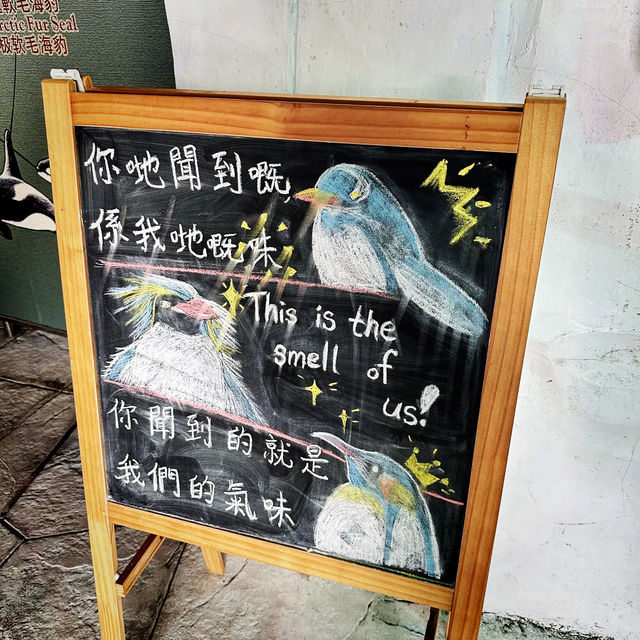 軟毛海豹
rctic Fur Seal
极软毛海豹
你哋聞到嘅,
係我哋嘅味
This is the
smell of
us!
你聞到的就是
我們的氣味